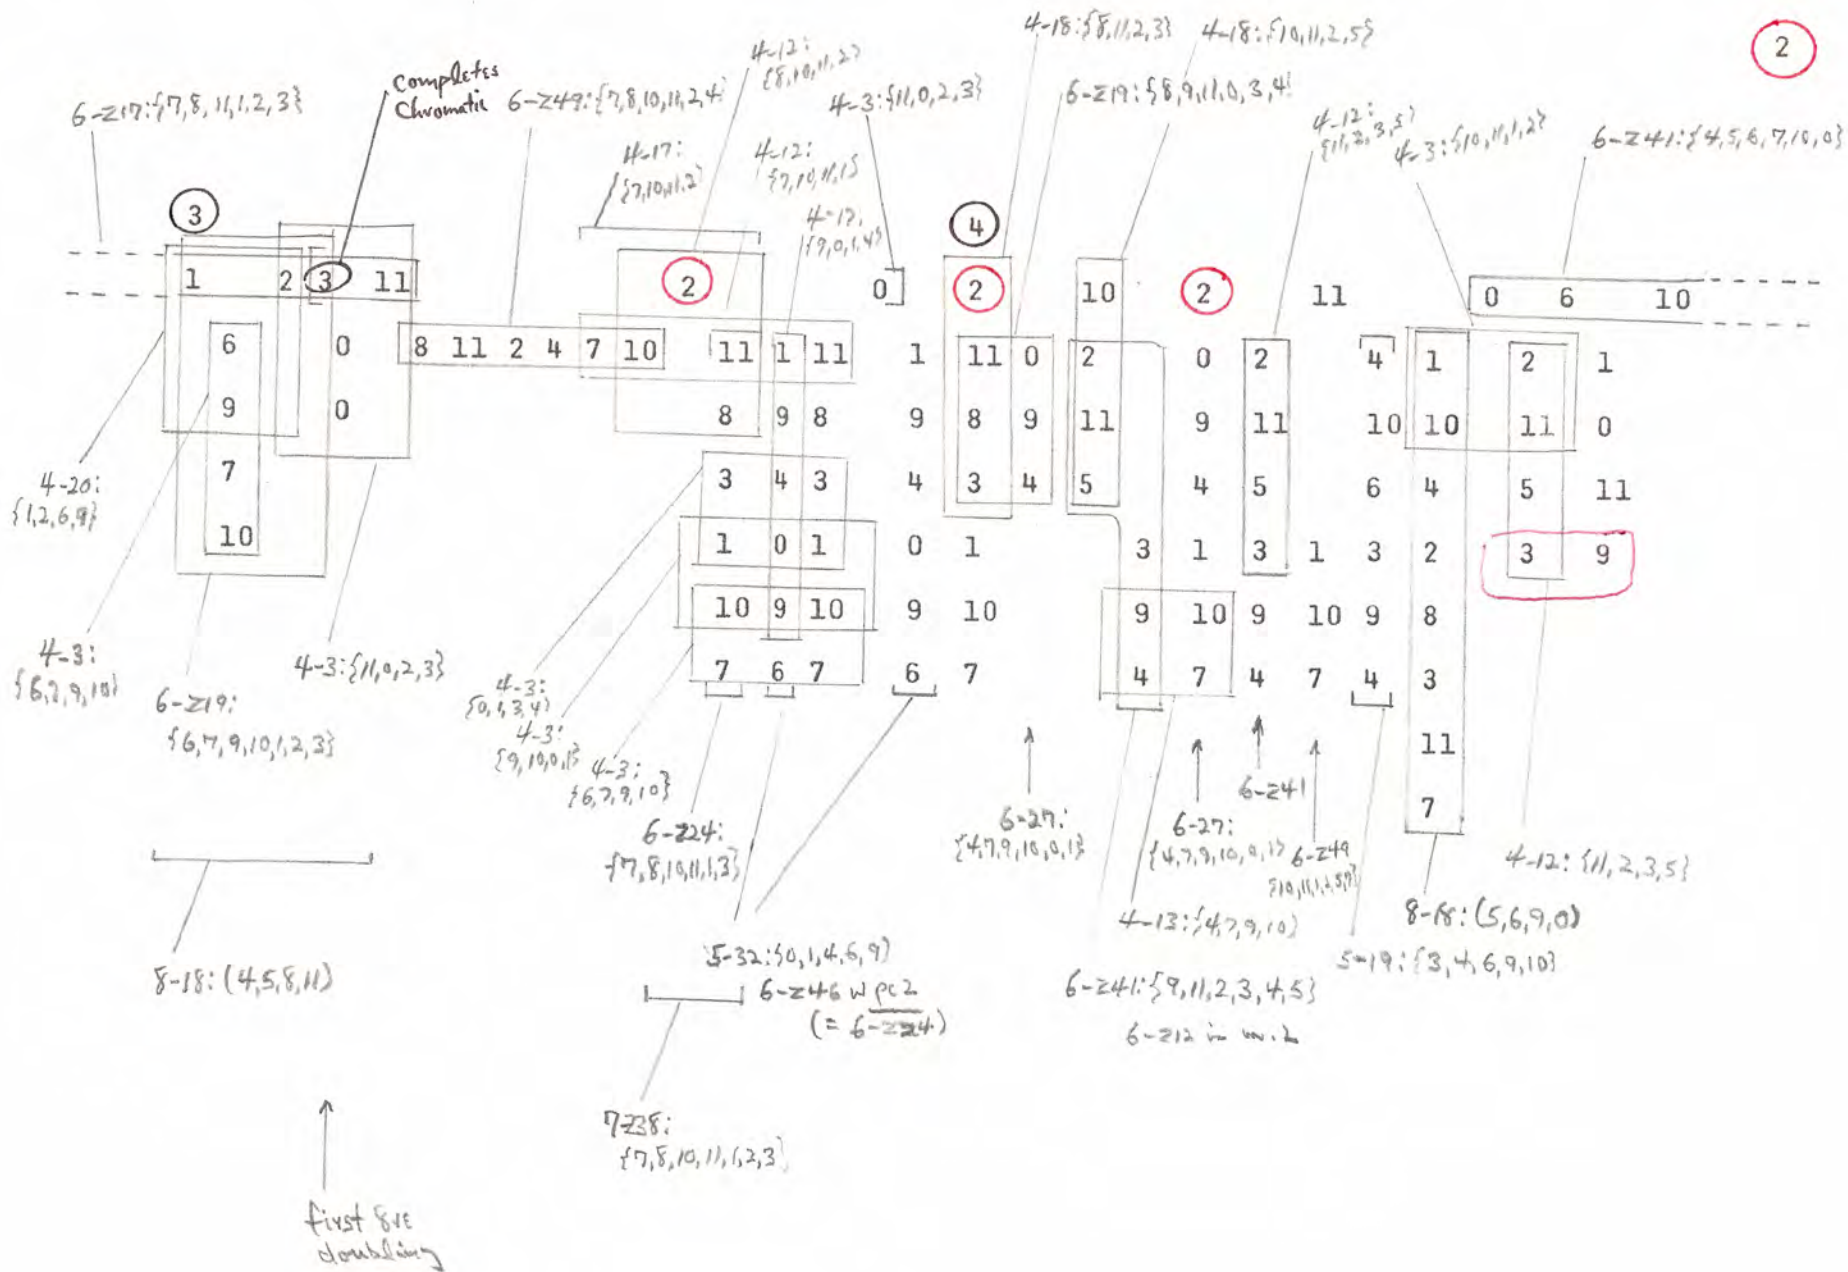 2
4-18:{8,11,2,3}
4-18:{10,11,2,5}
4-12:
{8,10,11,2}
completes
Chromatic
6-z17:{7,8,11,1,2,3}
6-z49:{7,8,10,11,2,4}
4-3:{11,0,2,3}
6-z19:{8,9,11,0,3,4}
4-12:
{11,2,3,5}
4-3:{10,11,1,2}
6-z41:{4,5,6,7,10,0}
4-17:
{7,10,11,2}
4-12:
{7,10,11,1}
4-17:
{9,0,1,4}
3
4
1 2 3 11 2 0 2 10 2 11 0 6 10
6 0 8 11 2 4 7 10 11 1 11 1 11 0 2 0 2 4 1 2 1
9 0 8 9 8 9 8 9 11 9 11 10 10 11 0
7 3 4 3 4 3 4 5 4 5 6 4 5 11
10 1 0 1 0 1 3 1 3 1 3 2 3 9
10 9 10 9 10 9 10 9 10 9 8
7 6 7 6 7 4 7 4 7 4 3
11
7
4-20:
{1,2,6,9}
4-3:
{6,7,9,10}
4-3:{11,0,2,3}
6-z19:
{6,7,9,10,1,2,3}
4-3:
{0,1,3,4}
4-3:
{9,10,0,1}
4-3:
{6,7,9,10}
6-z24:
{7,8,10,11,1,3}
6-27:
{4,7,9,10,0,1}
6-27:
{4,7,9,10,0,1}
6-z41
6-z49
{10,11,1,2,5,7}
4-12:{11,2,3,5}
4-13:{4,7,9,10}
8-18:(5,6,9,0)
5-19:{3,4,6,9,10}
8-18:(4,5,8,11)
5-32:{0,1,4,6,9}
6-z46 w pc2
(= 6-z24)
6-z41:{9,11,2,3,4,5}
6-z12 in
7-z38:
{7,8,10,11,1,2,3}
first 8ve
doubling